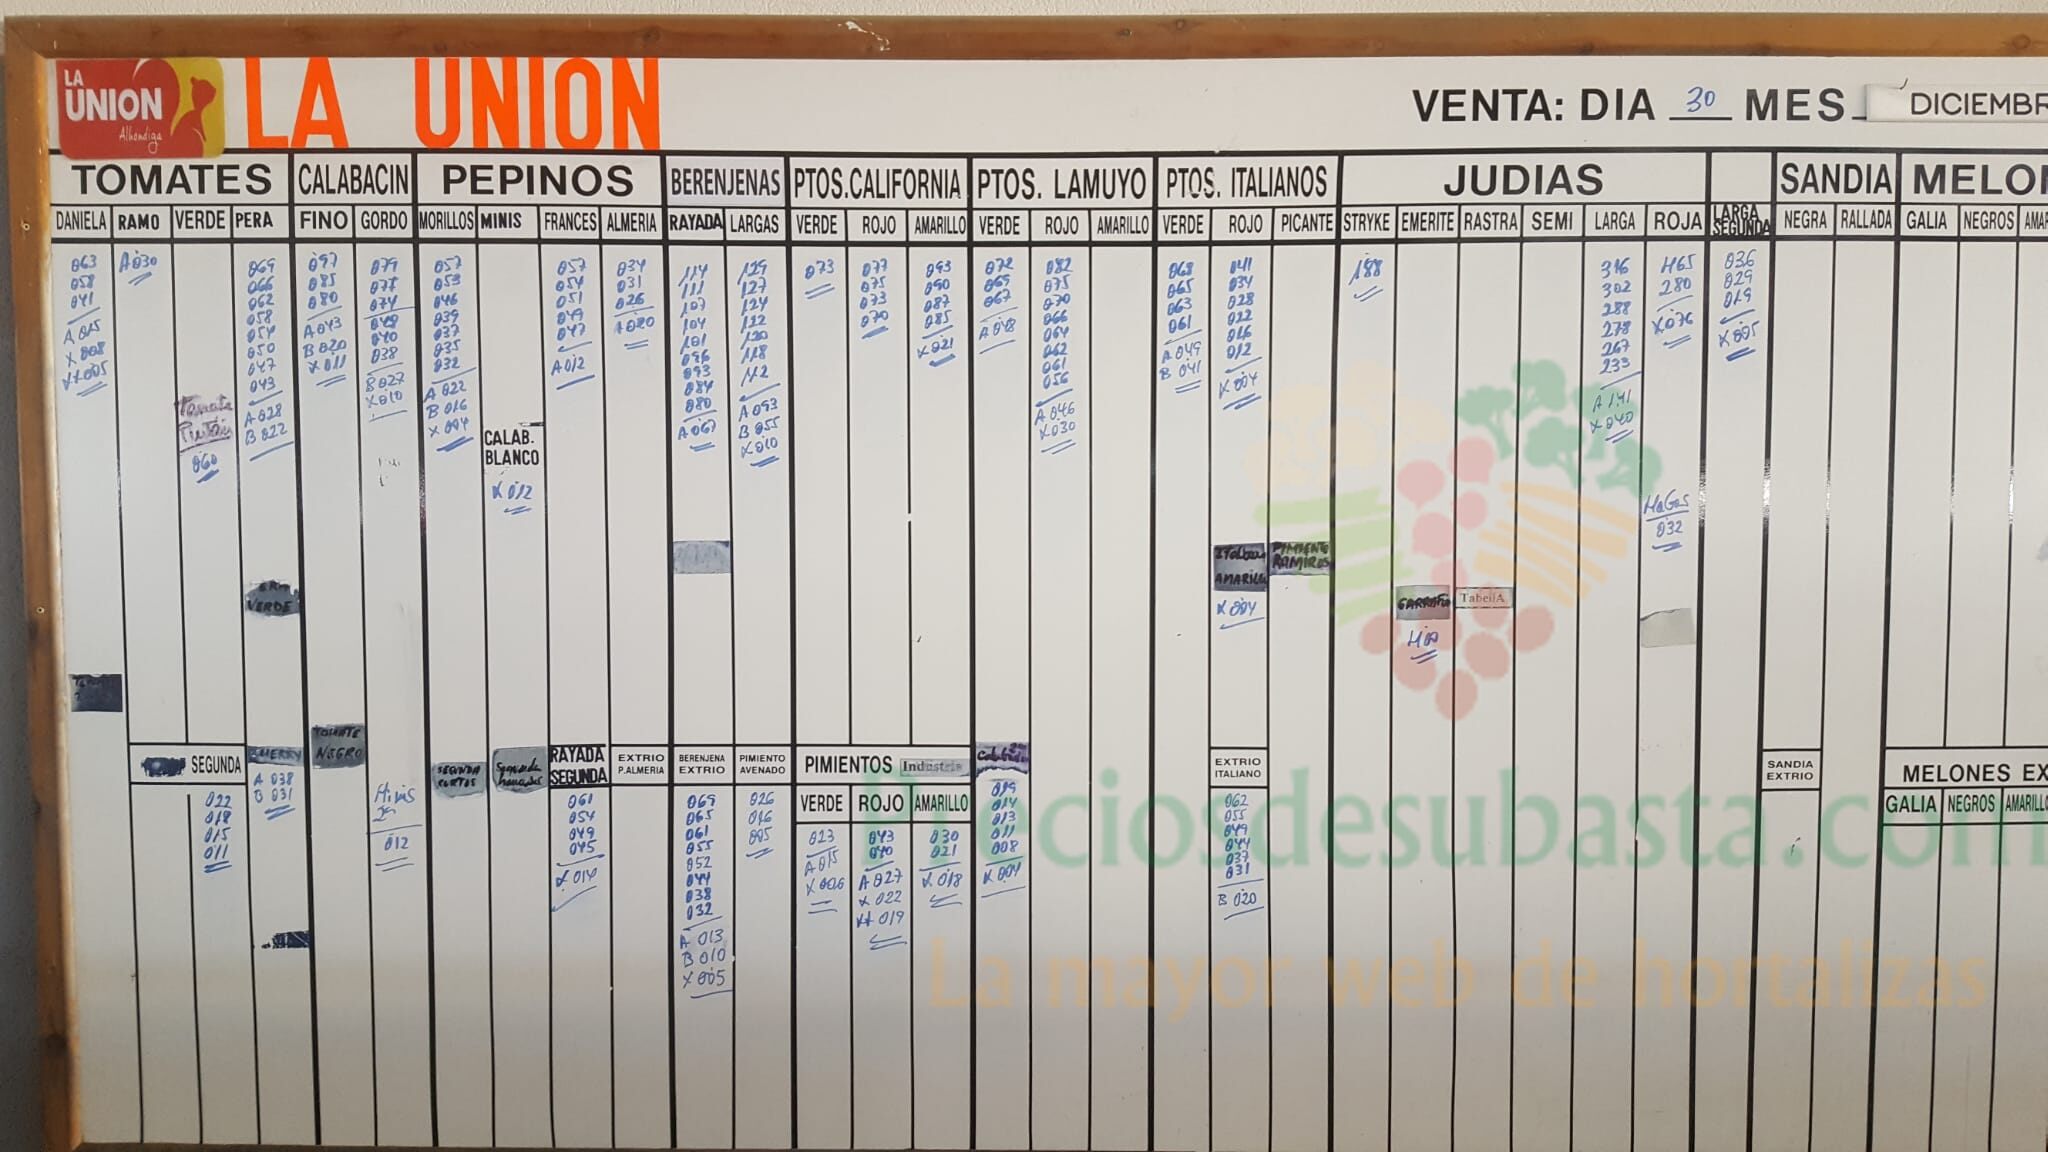 LA
UNION
Alhóndiga
LA UNION
VENTA: DIA 30 MES DICIEMBR
TOMATES CALABACIN PEPINOS BERENJENAS PTOS.CALIFORNIA PTOS. LAMUYO PTOS. ITALIANOS JUDIAS SANDIA MELON
DANIELA RAMO VERDE PERA FINO GORDO MORILLOS MINIS FRANCES ALMERIA RAYADA LARGAS VERDE ROJO AMARILLO VERDE ROJO AMARILLO VERDE ROJO PICANTE STRYKE EMERITE RASTRA SEMI LARGA ROJA LARGA SEGUNDA NEGRA RALLADA GALIA NEGROS AMAR
063
058
041
A 015
X 008
XX 005
A 030
Tomate
060
069
066
062
058
054
050
047
043
A 028
B 022
097
085
080
A 043
B 020
X 011
079
077
074
048
040
038
B 027
X 010
057
053
046
039
037
035
032
A 022
B 016
X 004
CALAB.
BLANCO
X 012
057
054
051
049
047
A 012
034
031
026
A 020
114
111
107
104
101
096
093
084
080
A 067
129
127
124
122
120
118
112
A 093
B 055
X 010
073
077
075
073
070
093
090
087
085
X 021
072
069
067
A 048
082
075
070
066
064
062
061
056
A 046
X 030
068
065
063
061
A 049
B 041
041
034
028
022
016
012
X 004
AMARILLO
X 004
PIMIENTO
RAMIROS
188
GARRAFON
400
TabellA
316
302
288
278
267
233
A 141
X 040
465
280
X 076
HaGas
032
036
029
019
X 005
VERDE
SEGUNDA
022
018
015
011
CHERRY
A 038
B 031
TOMATE
NEGRO
Minis
012
SEGUNDA
CORTOS
Segunda
RAYADA
SEGUNDA
061
054
049
045
X 014
EXTRIO
P.ALMERIA
BERENJENA
EXTRIO
069
065
061
055
052
044
038
032
A 013
B 010
X 005
PIMIENTO
AVENADO
026
016
005
PIMIENTOS Industria
VERDE ROJO AMARILLO
023
A 015
X 006
043
040
A 027
X 022
XX 019
030
021
X 018
019
014
013
011
008
X 004
EXTRIO
ITALIANO
062
055
049
044
037
031
B 020
SANDIA
EXTRIO
MELONES EX
GALIA NEGROS AMARILLO
Preciosdesubasta.com
La mayor web de hortalizas